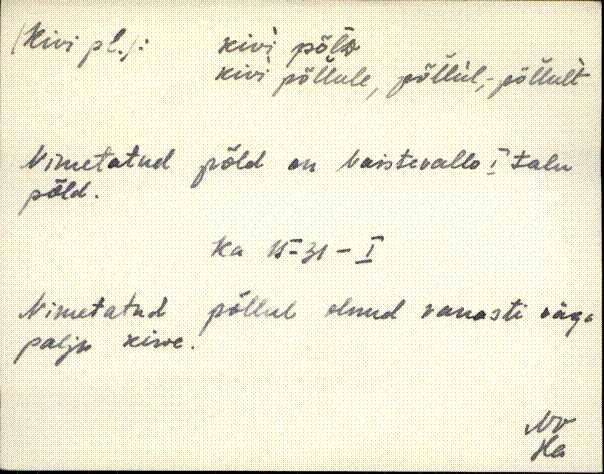 (Kivi pl.): kivì põld
kivì põllule, põllùl, -põllult
Nimetatud põld on Vaistevallo I talu
põld.
Ka 15-31-I
Nimetatud põllul olnud vanasti väga
palju kive.